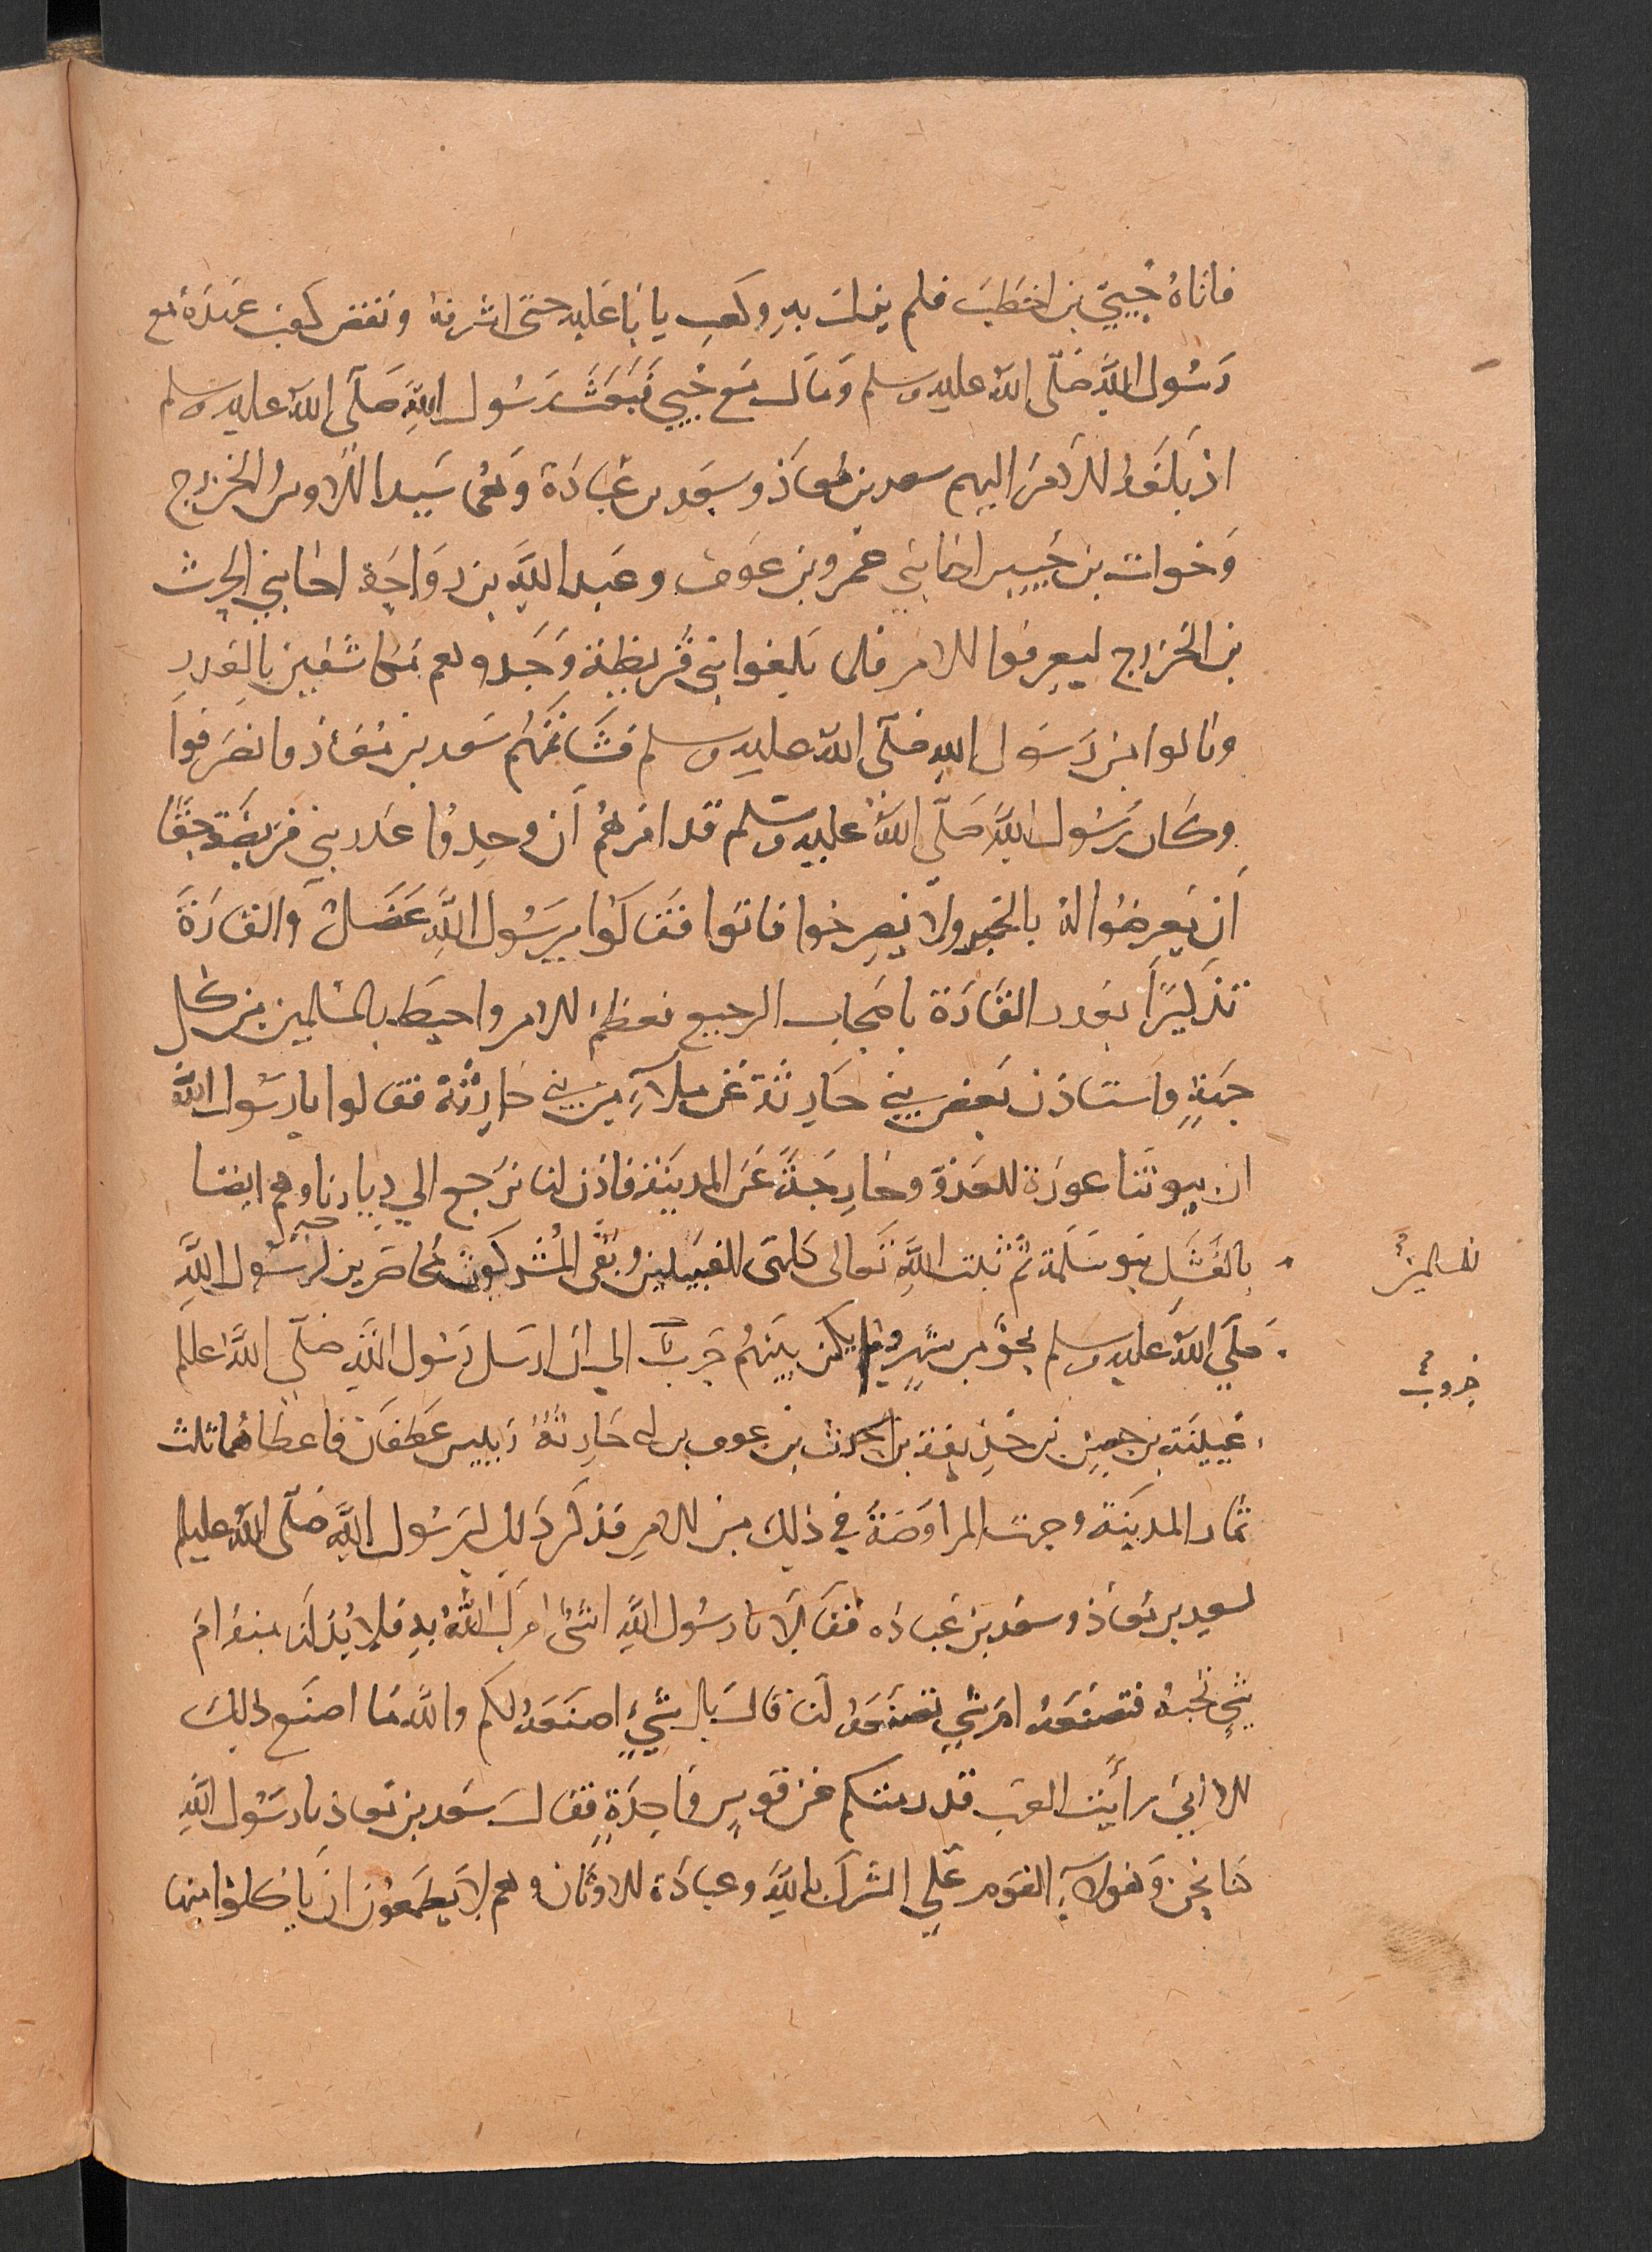 فاتاهُ حُييّ بن اخطَبَ فلم يزل بهِ وكعب يابا عَليه حتى اشرفه ونقض كعب عَهدَهُ مع
رسُول اللهِ صَلّى اللهُ عليه وسلم وَمَال مَع حُيي فَبَعَثَ رسُول اللهِ صَلّى اللهُ عليه وسلم
اذ بَلَغَهُ الامرُ اليهم سعد بن مُعاذ وسَعد بن عُبَادَة وَهُما سَيدا الاوس والخزرج
وَخوات بن جُبَير اخا بني عَمرو بن عَوف وعَبد اللهِ بن رَوَاحَة اخا بني الحرث
بن الخزرج ليعرِفوا الامر فلما بَلغوا بني قُريظة وَجَدوهم مُكاشفين بالغدر
ونالوا من رَسول اللهِ صَلّى اللهُ عليه وسلم فَشَاتمَهُم سَعد بن مُعَاذ وانصَرفوا
وكان رسُول اللهِ صَلّى اللهُ عليه وسَلم قد امَرهُم ان وجدوا غدر بني قريضَة حَقا
اَن يَعرِضُوا لهُ بالخبر ولا يُصرِخوا فاتوا فقالوا يرسُول اللهِ عَضَل والقارَة
تذكيرًا بغدر القَارَة باصحاب الرجيع فعظم الامر واحيط بالمسلمين من كل
جهةٍ واستاذن بَعض بني حَارثة عَن ملاءٍ من بني حَارثة فقالوا يا رسُول اللهِ
ان بيوتَنا عورَة للعَدوّ وخارجَة عَن المدينَة فاذن لنا نرَجع الي ديارنا وهم ايضا
بالفَشَل بنو سَلمَة ثم ثبت اللهِ تعَالى كلتى القبيلين وبَقى المُشركونَ محاصرين لرسُول اللهِ
صَلّي اللهُ عليه وسلم نحوٌ من شهرٍ ولم يكن بينهُم حَربٌ الي ان ارسَل رسُول اللهِ صَلّى اللهُ عليه وسلم
عُيينَة بن حصن بن حُذيفة بن الحرث بن عوف بن ابي حَارثة رَييس غَطفَان فاعطاهُما ثلث
ثمار المدينة وجرت المراوَضَة في ذلِك من الامرِ فذكرَ ذلِك رسُول اللهِ صَلّى اللهُ عليه وسلم
لسعد بن مُعاذ وسَعد بن عُبادَه فقالا يا رسُول اللهِ اشئ امرك اللهُ بهِ فلابُدّ لنا منه ام
شيٍ تحبهُ فتصنَعهُ ام شيٍ تصنعهُ لنا قالَ بل شيءٍ اصنَعهُ لكم واللهِ مَا اصنَع ذلِكَ
الا اني رأيت العرب قد رمتكم عَن قوسٍ وَاحِدَةٍ فقالَ سَعد بن مُعاذ يا رسُول اللهِ
كنا نحن وَهولاءِ القوم عَلي الشرك باللهِ وعبادَة الاوثان وهم لا يَطمعون ان يَاكلوا منها
للمسالمين
حروب